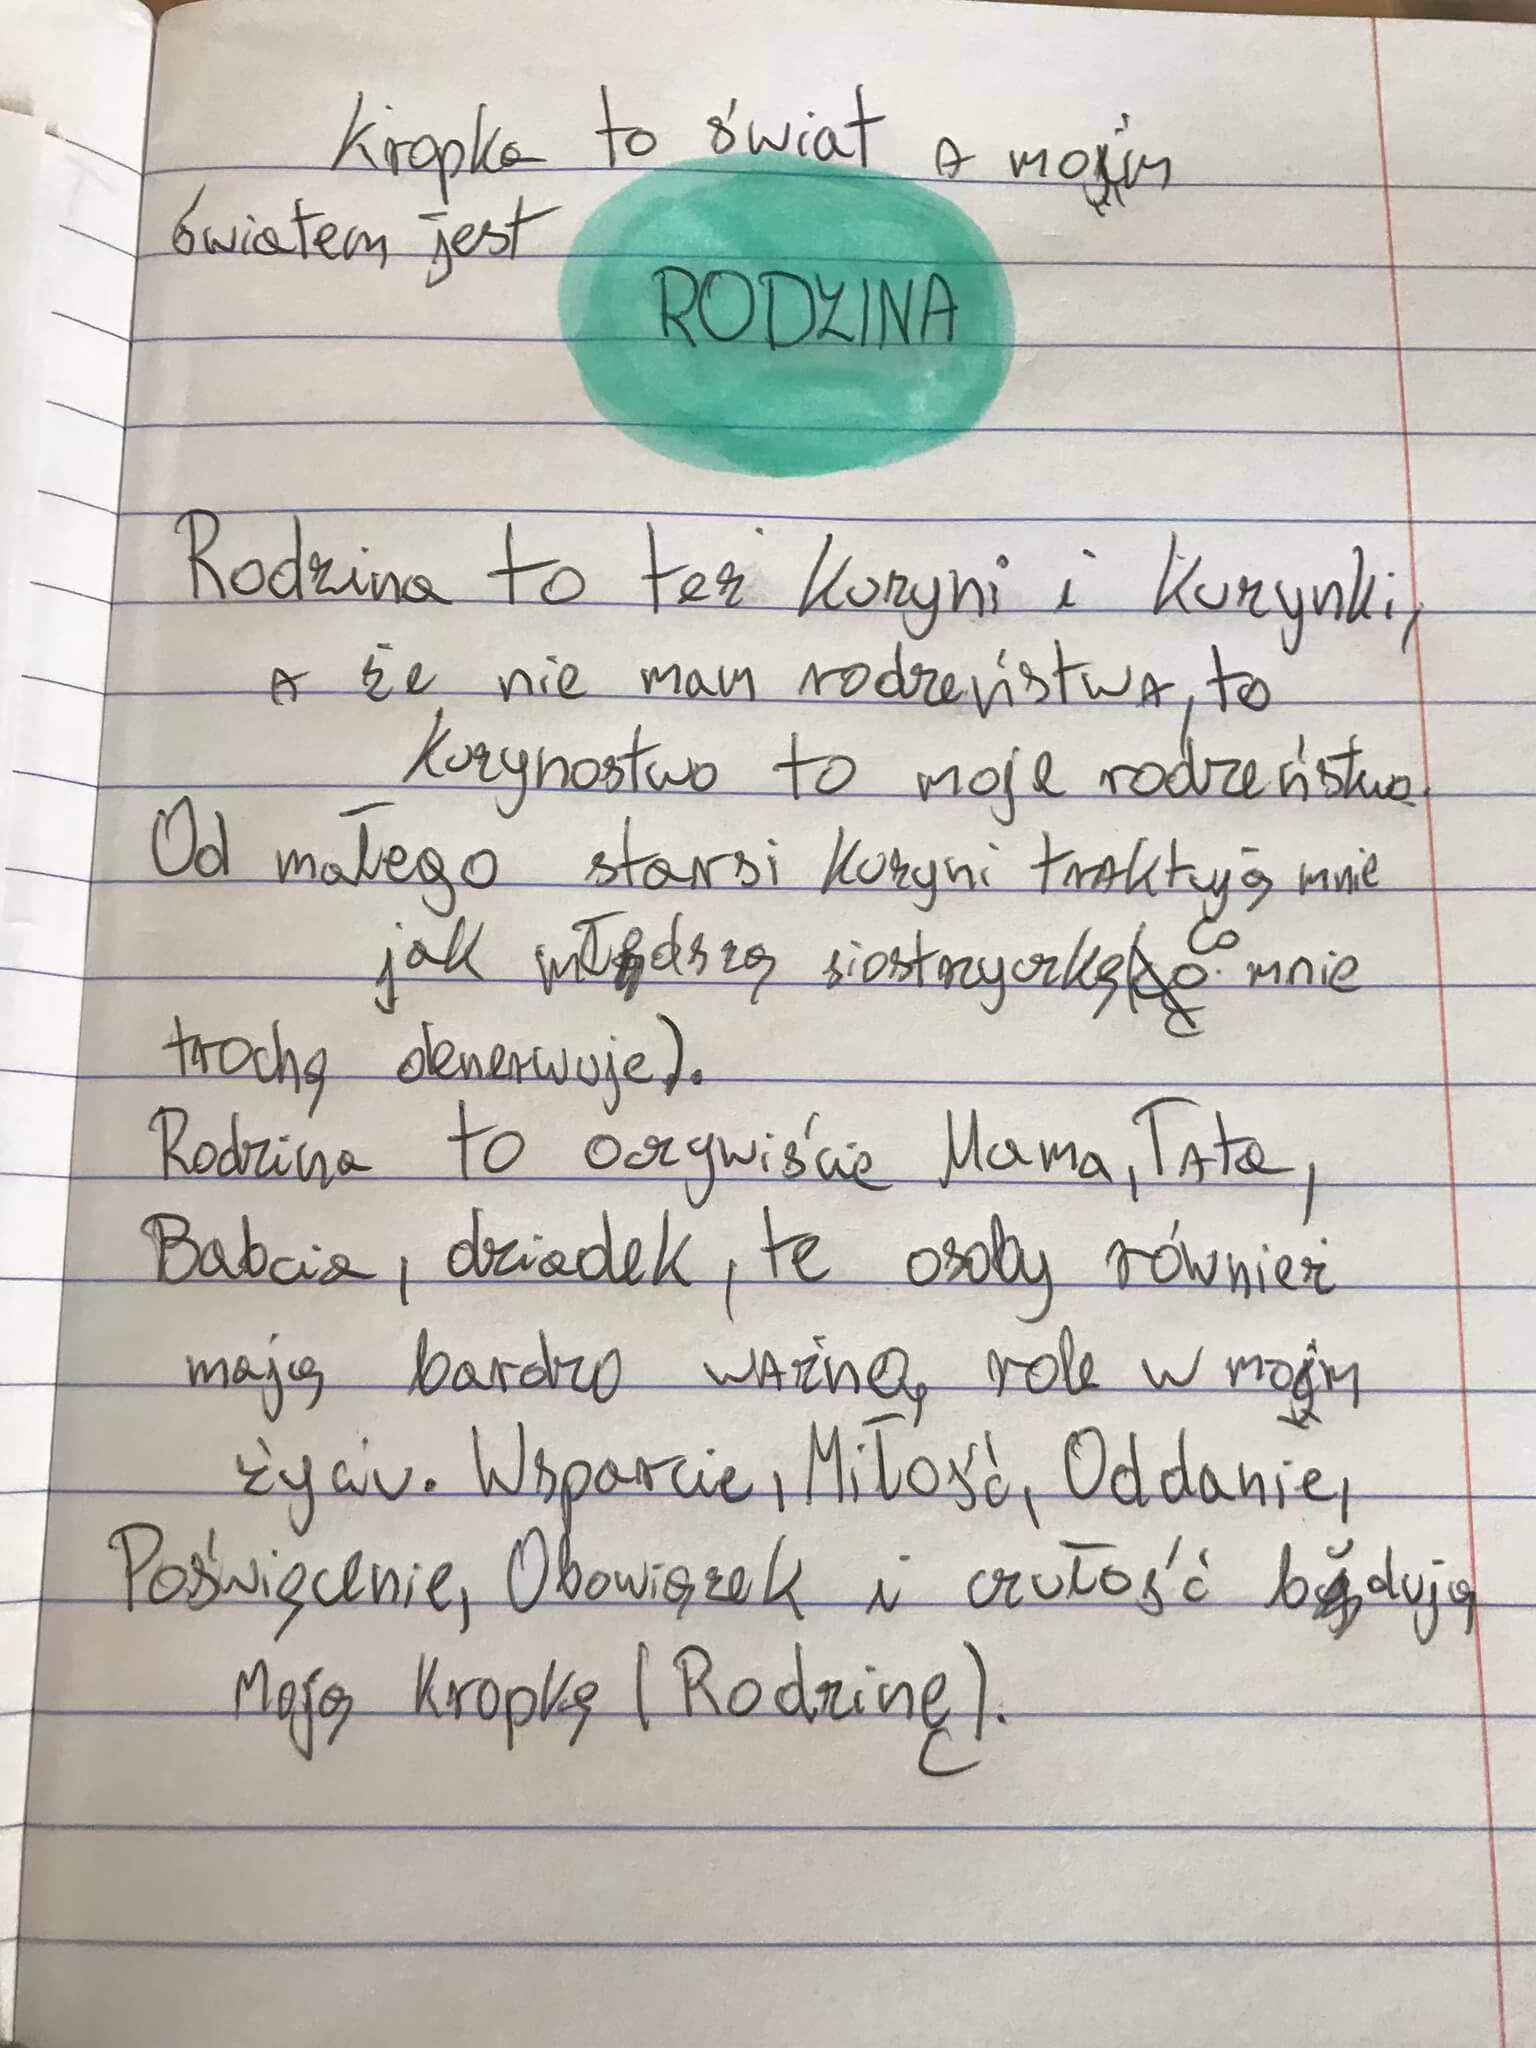 Kropka to świat a moim
światem jest
RODZINA
Rodzina to też kuzyni i kuzynki,
a że nie mam rodzeństwa, to
kuzynostwo to moje rodzeństwo.
Od małego starsi kuzyni traktują mnie
jak młodszą siostrzyczkę (co mnie
trochę denerwuje).
Rodzina to oczywiście Mama, Tata,
Babcia, dziadek, te osoby również
mają bardzo ważną role w moim
życiu. Wsparcie, Miłość, Oddanie,
Poświęcenie, Obowiązek i czułość budują
Moją kropkę (Rodzinę).